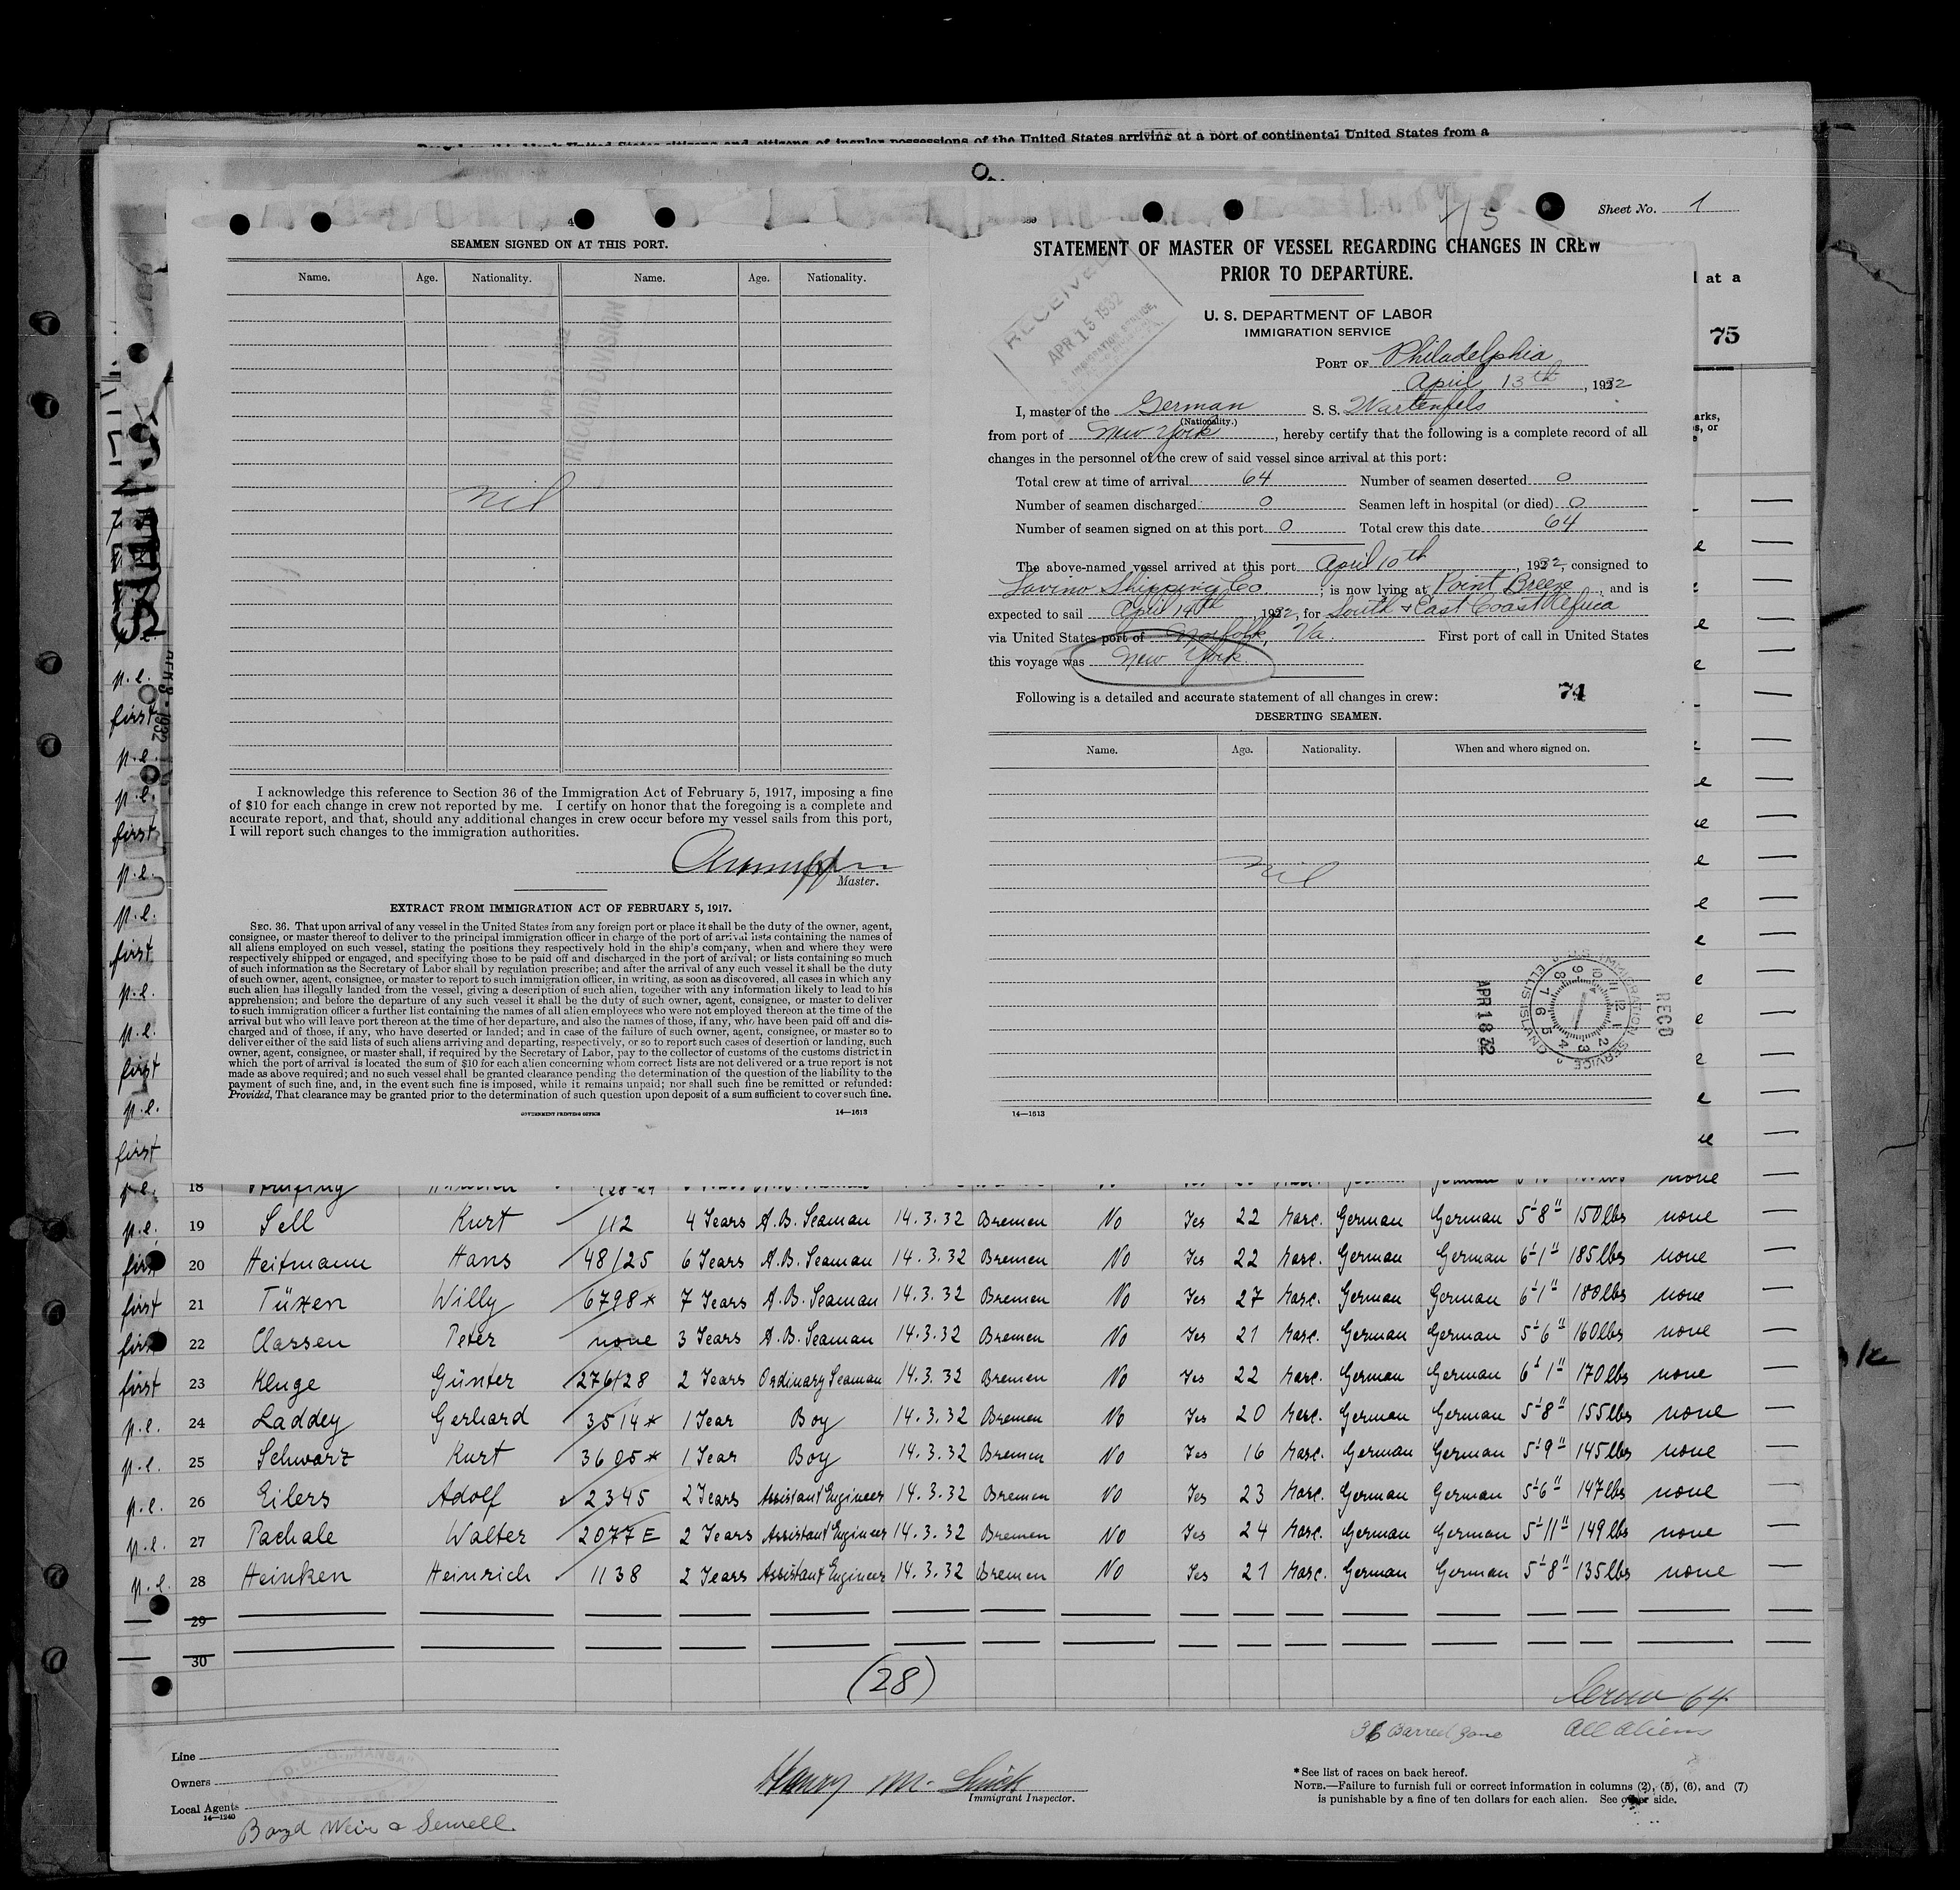 of insular possessions of the United States arriving at a port of continental United States from a
Sheet No. 1
SEAMEN SIGNED ON AT THIS PORT.
Name. Age. Nationality. Name. Age. Nationality.
nil
I acknowledge this reference to Section 36 of the Immigration Act of February 5, 1917, imposing a fine
of $10 for each change in crew not reported by me. I certify on honor that the foregoing is a complete and
accurate report, and that, should any additional changes in crew occur before my vessel sails from this port,
I will report such changes to the immigration authorities.
Master.
EXTRACT FROM IMMIGRATION ACT OF FEBRUARY 5, 1917.
SEC. 36. That upon arrival of any vessel in the United States from any foreign port or place it shall be the duty of the owner, agent,
consignee, or master thereof to deliver to the principal immigration officer in charge of the port of arrival lists containing the names of
all aliens employed on such vessel, stating the positions they respectively hold in the ship's company, when and where they were
respectively shipped or engaged, and specifying those to be paid off and discharged in the port of arrival; or lists containing so much
of such information as the Secretary of Labor shall by regulation prescribe; and after the arrival of any such vessel it shall be the duty
of such owner, agent, consignee, or master to report to such immigration officer, in writing, as soon as discovered, all cases in which any
such alien has illegally landed from the vessel, giving a description of such alien, together with any information likely to lead to his
apprehension; and before the departure of any such vessel it shall be the duty of such owner, agent, consignee, or master to deliver
to such immigration officer a further list containing the names of all alien employees who were not employed thereon at the time of the
arrival but who will leave port thereon at the time of her departure, and also the names of those, if any, who have been paid off and dis-
charged and of those, if any, who have deserted or landed; and in case of the failure of such owner, agent, consignee, or master so to
deliver either of the said lists of such aliens arriving and departing, respectively, or so to report such cases of desertion or landing, such
owner, agent, consignee, or master shall, if required by the Secretary of Labor, pay to the collector of customs of the customs district in
which the port of arrival is located the sum of $10 for each alien concerning whom correct lists are not delivered or a true report is not
made as above required; and no such vessel shall be granted clearance pending the determination of the question of the liability to the
payment of such fine, and, in the event such fine is imposed, while it remains unpaid; nor shall such fine be remitted or refunded:
Provided, That clearance may be granted prior to the determination of such question upon deposit of a sum sufficient to cover such fine.
GOVERNMENT PRINTING OFFICE 14—1613
STATEMENT OF MASTER OF VESSEL REGARDING CHANGES IN CREW
PRIOR TO DEPARTURE.
RECEIVED
APR 15 1932
U. S. DEPARTMENT OF LABOR
IMMIGRATION SERVICE
PORT OF Philadelphia
April 13th, 1932
I, master of the German S. S. Wartenfels
(Nationality.)
from port of New York, hereby certify that the following is a complete record of all
changes in the personnel of the crew of said vessel since arrival at this port:
Total crew at time of arrival 64 Number of seamen deserted 0
Number of seamen discharged 0 Seamen left in hospital (or died) 0
Number of seamen signed on at this port 0 Total crew this date 64
The above-named vessel arrived at this port April 10th, 1932, consigned to
Lavino Shipping Co.; is now lying at Point Breeze, and is
expected to sail April 14th 1932, for South & East Coast Africa
via United States port of Norfolk, Va. First port of call in United States
this voyage was New York
Following is a detailed and accurate statement of all changes in crew: 74
DESERTING SEAMEN.
Name. Age. Nationality. When and where signed on.
nil
APR 18 32
RECD
IMMIGRATION SERVICE ELLIS ISLAND
14—1613
l at a
75
p.l. 18 none
p.l. 19 Sell Kurt 112 4 Years A.B. Seaman 14.3.32 Bremen No Yes 22 Masc. German German 5'8" 150lbs none —
first 20 Heitmann Hans 48/25 6 Years A.B. Seaman 14.3.32 Bremen No Yes 22 Masc. German German 6'1" 185lbs none —
first 21 Tüxen Willy 6798* 7 Years A.B. Seaman 14.3.32 Bremen No Yes 27 Masc. German German 6'1" 180lbs none —
first 22 Classen Peter none 3 Years A.B. Seaman 14.3.32 Bremen No Yes 21 Masc. German German 5'6" 160lbs none —
first 23 Kluge Günter 276/28 2 Years Ordinary Seaman 14.3.32 Bremen No Yes 22 Masc. German German 6'1" 170lbs none —
p.l. 24 Laddey Gerhard 3514* 1 Year Boy 14.3.32 Bremen No Yes 20 Masc. German German 5'8" 155lbs none —
p.l. 25 Schwarz Kurt 3605* 1 Year Boy 14.3.32 Bremen No Yes 16 Masc. German German 5'9" 145lbs none —
p.l. 26 Eilers Adolf 2345 2 Years Assistant Engineer 14.3.32 Bremen No Yes 23 Masc. German German 5'6" 147lbs none —
p.l. 27 Pachale Walter 2077 E 2 Years Assistant Engineer 14.3.32 Bremen No Yes 24 Masc. German German 5'11" 149lbs none —
p.l. 28 Heinken Heinrich 1138 2 Years Assistant Engineer 14.3.32 Bremen No Yes 21 Masc. German German 5'8" 135lbs none —
29
30
(28)
Crew 64
36 Barred Zone All aliens
Line
Owners D. D.-G. „HANSA"
Local Agents
14—1240
Boyd Weir & Sewell.
Henry M.
Immigrant Inspector.
* See list of races on back hereof.
NOTE.—Failure to furnish full or correct information in columns (2), (5), (6), and (7)
is punishable by a fine of ten dollars for each alien. See other side.